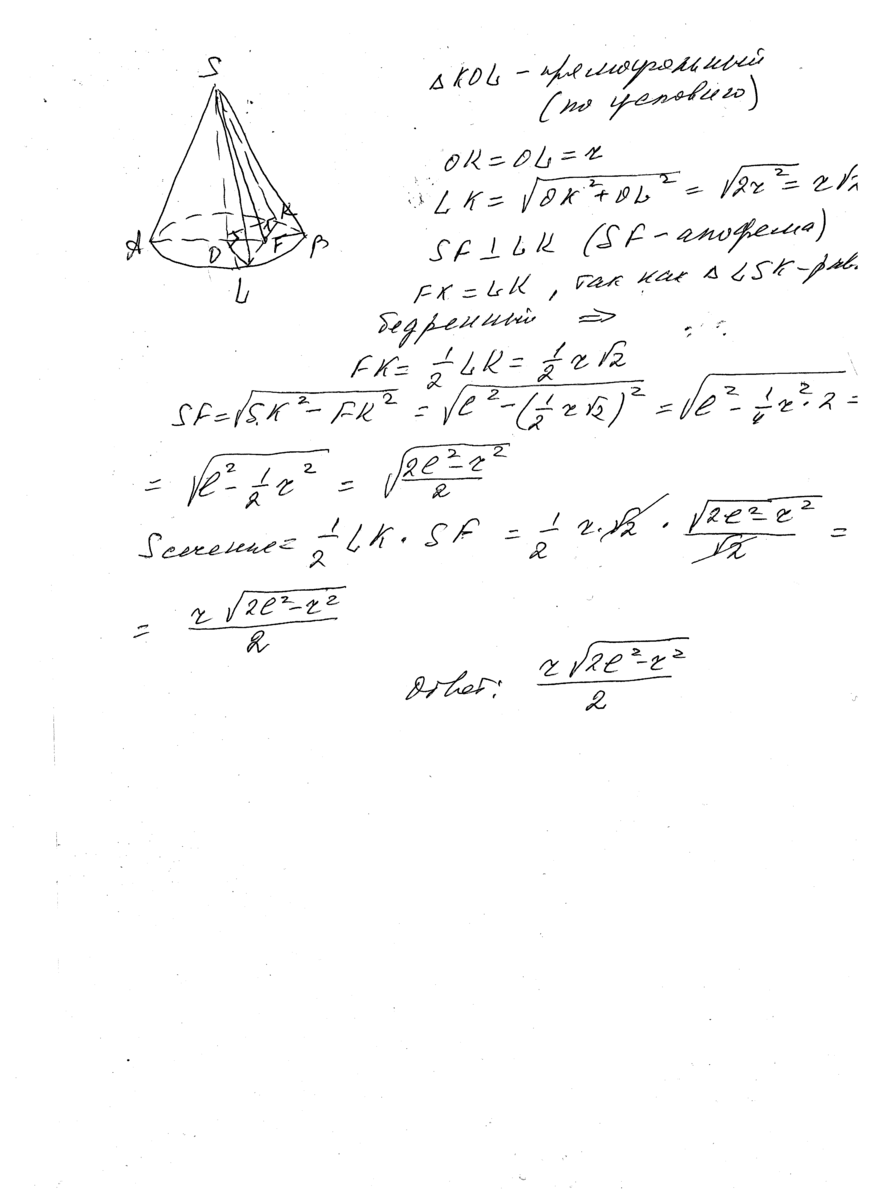 S
A O F K B
L
Δ KOL - прямоугольный
(по условию)
OK = OL = r
LK = √(OK² + OL²) = √(2r²) = r√2
SF ⊥ LK (SF - апофема)
FK = LK, так как Δ LSK - рав.
бедренный ⇒
FK = 1/2 LK = 1/2 r√2
SF = √(SK² - FK²) = √(ℓ² - (1/2 r√2)²) = √(ℓ² - 1/4 r² · 2) =
= √(ℓ² - 1/2 r²) = √((2ℓ² - r²)/2)
Sсечение = 1/2 LK · SF = 1/2 r · √2 · √(2ℓ² - r²)/√2 =
= r√(2ℓ² - r²)/2
Ответ: r√(2ℓ² - r²)/2